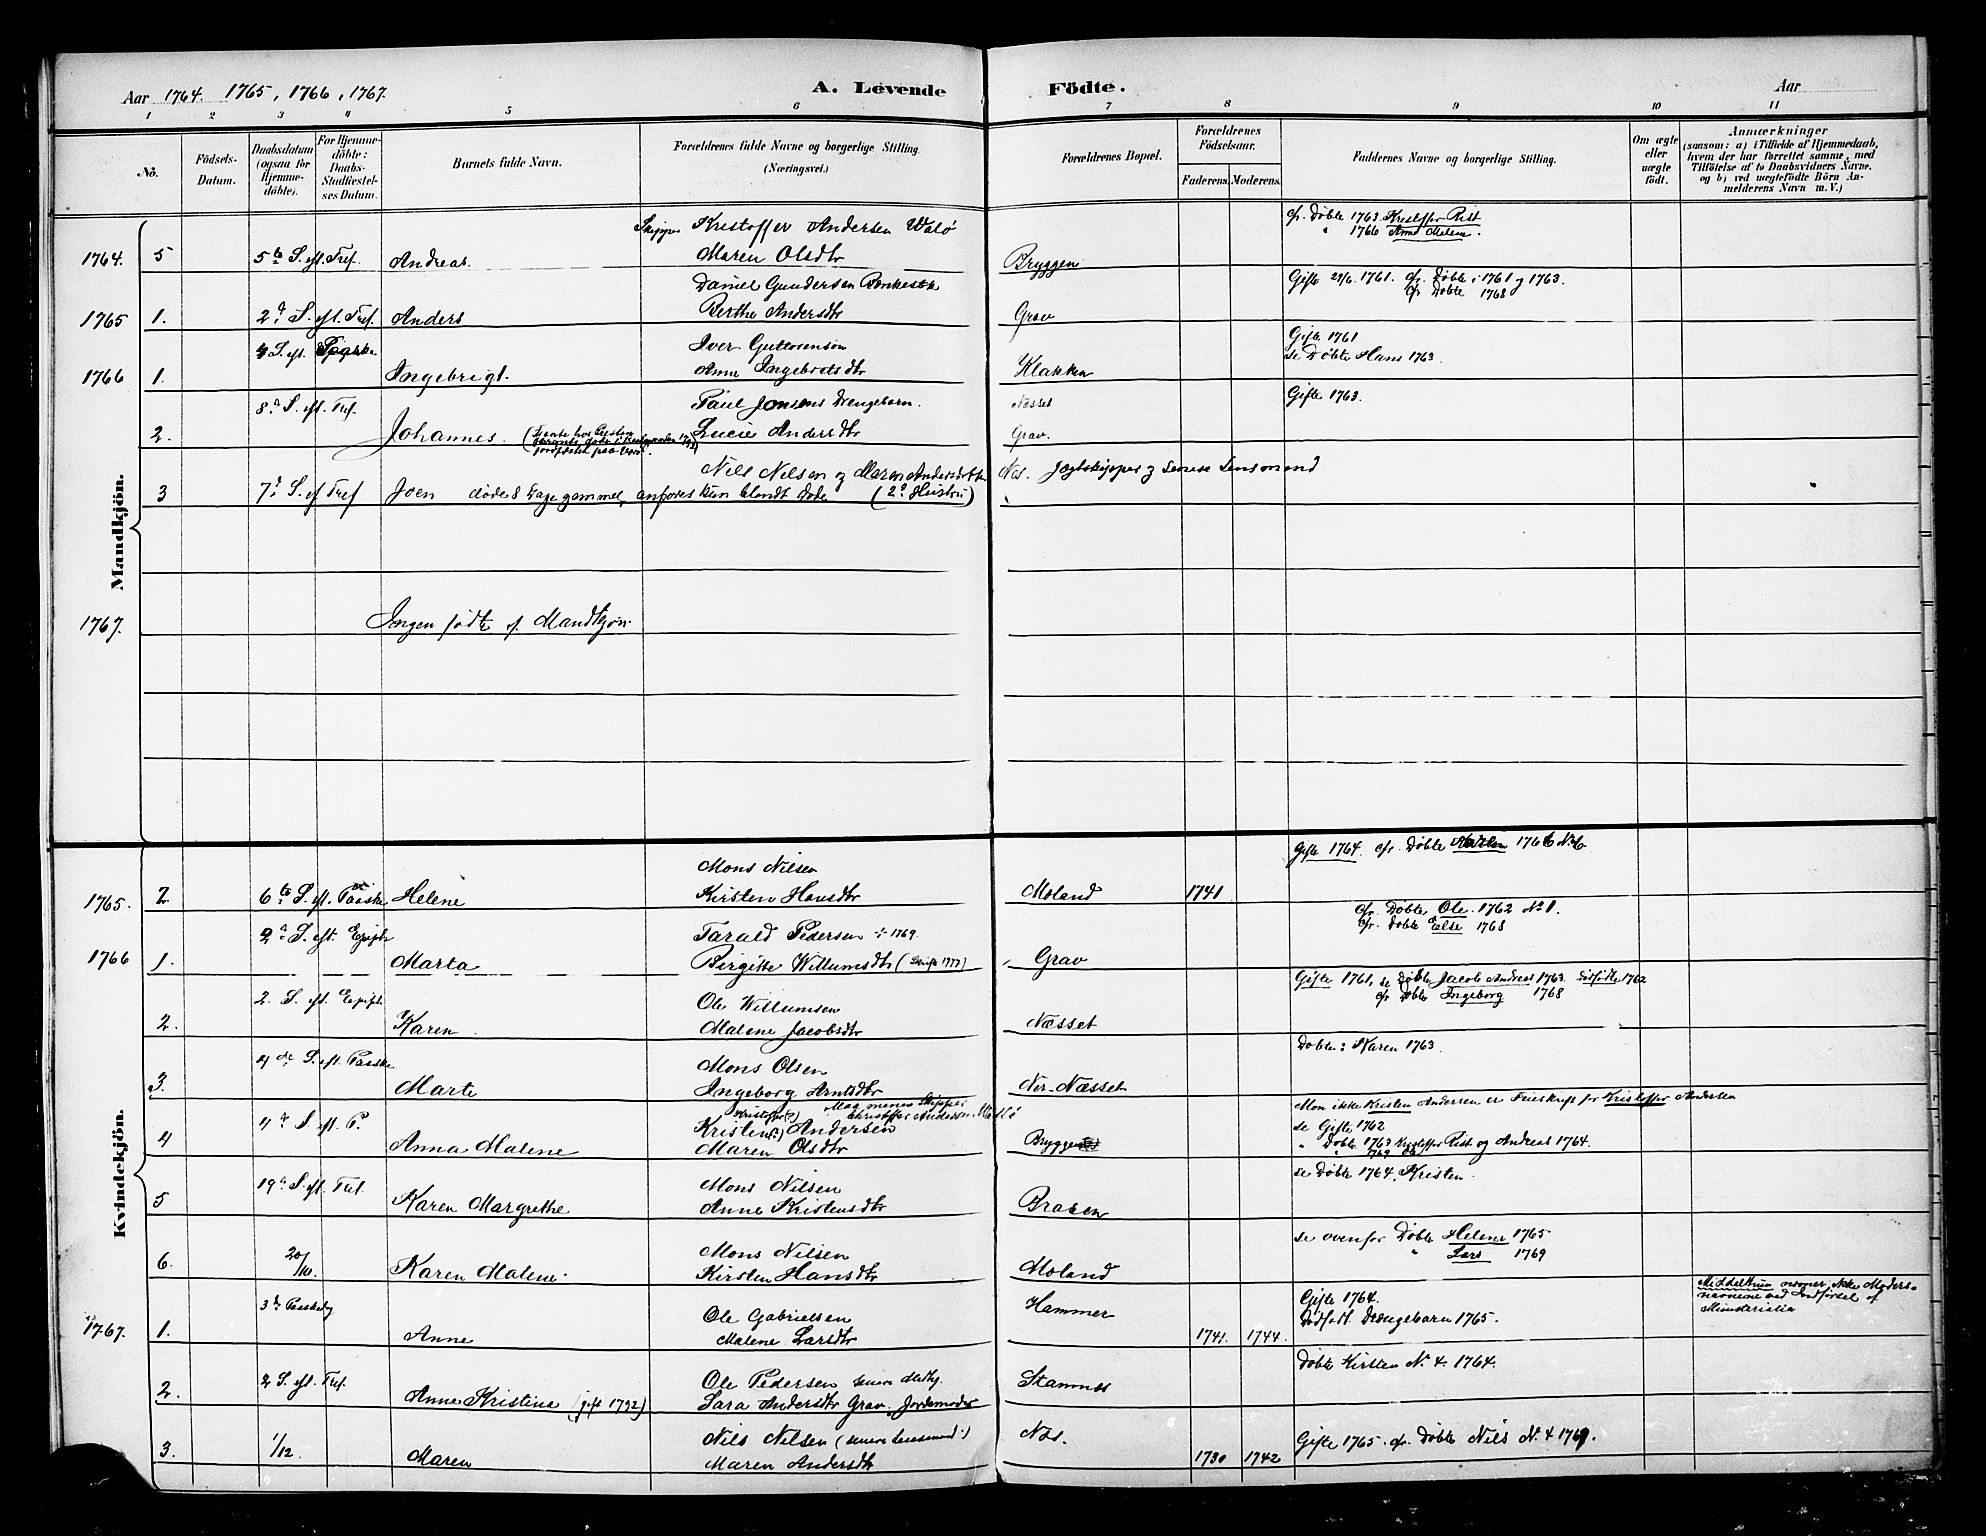 Aar 1764. 1765, 1766, 1767.
A. Levende Födte.
Aar
1 2 3 4 5 6 7 8 9 10 11
No.
Födsels-Datum.
Daabsdatum (ogsaa for Hjemmedöbte).
For Hjemmedöbte: Daabs-Stadfæstelses Datum.
Barnets fulde Navn.
Forældrenes fulde Navne og borgerlige Stilling. (Næringsvei.)
Forældrenes Bopæl.
Forældrenes Födselsaar.
Faderens. Moderens.
Faddernes Navne og borgerlige Stilling.
Om ægte eller uægte födt.
Anmærkninger
(saasom: a) i Tilfælde af Hjemmedaab,
hvem der har forrettet samme, med
Tilföielse af to Daabsvidners Navne.
og b) ved uægtefödte Börn An-
melderens Navn m. V.)
Mandkjön.
Skipper Kristoffer Andersen Walø
cfr. Døbte 1763 Kristoffer Rist
" 1766 Anna Malene.
1764. 5 5te S. eft. Tref. Andreas. Maren Olsdtr Bryggen
Daniel Gundersen
Gifte 29/6 1761. cfr. Døbte i 1761 og 1763.
cfr Døbte 1768
1765 1. 2d S. eft. Tref. Anders Berthe Andersdtr Grav
4 S. eft. Paaske Iver Guttormsen
Gifte 1761
se Døbte Hans 1763.
1766 1. Ingebrigt. Anne Ingebrtsdtr Klakken
8d S. eft. Tref. Paul Jonsens Drengebarn. Næsset Gifte 1763.
2. Johannes. (Tjente hos Presten Lucie Andersdtr Grav.
Nils Nilsen og Maren Andersdatter Nes. Jægtskipper og senere Lensmand
3 7d S. ef Tref Joen døde 8 Dage gammel, anføres kun blandt døde (2d Hustru)
1767. Ingen fødte af Mandkjøn.
Kvindekjön.
Mons Nilsen Gifte 1764. cfr. Døbte Karen 1766 No 6
1765. 2. 6te S. eft. Paaske Helene Kirsten Hansdtr Moland 1741
2d S. eft. Epiph Tarald Pedersen ÷ 1769.
cfr. Døbte Ole 1762 No 1.
cfr. Døbte Else 1768
1766 1. Marta Birgitte Willumsdtr (Skifte 1777) Grav
2. S. eft Epiph. Ole Willumsen
Gifte 1761, se Døbte Jacob Andreas 1763 Dødfødte 1762
cfr Døbte Ingeborg 1768
2. Karen Malene Jacobsdtr Næsset
4de S. eft. Paaske Mons Olsen Døbte: Karen 1763.
3. Marte Ingeborg Arntsdtr Ner-Næsset
Kristoffer(?) Maa menes Skipper Christoffer Andersen Walø
Mon ikke Kristen Andersen er Feilskrift for Kristoffer Andersen
4d S. eft. P. Kristen(?) Andersen se Gifte 1762
4 Anna Malene Maren Olsdtr Bryggen
" Døbte 1763 Kristoffer Rist og Andreas 1764.
19d S. eft. Tref. Mons Nilsen se Døbte 1764, Kristen.
5 Karen Margrethe Anne Kristensdtr Braken
20/10. Mons Nilsen se ovenfor Døbte Helene 1765
" Lars 1769
6. Karen Malene. Kirsten Hansdtr Moland
3de Paaskedg Ole Gabrielsen Hammer Gifte 1764.
Dødfødt Drengebarn 1765.
Middelthun nævner ikke Moders-
navnet ved Indførsel af
Ministerialia
1767. 1. Anne Malene Larsdtr 1741. 1744.
2 S. eft. Tref. Ole Pedersen senere Medhj. Stamnes Døbte Kirsten N. 4. 1764.
2. Anne Kristine (gift 1792) Sara Andersdtr Grav. Jordemoder
1/12. Nils Nilsen (senere Lensmand.) Nes. Gifte 1765. cfr. Døbte Nils N. 4 1769.
3. Maren Maren Andersdtr 1730 1742